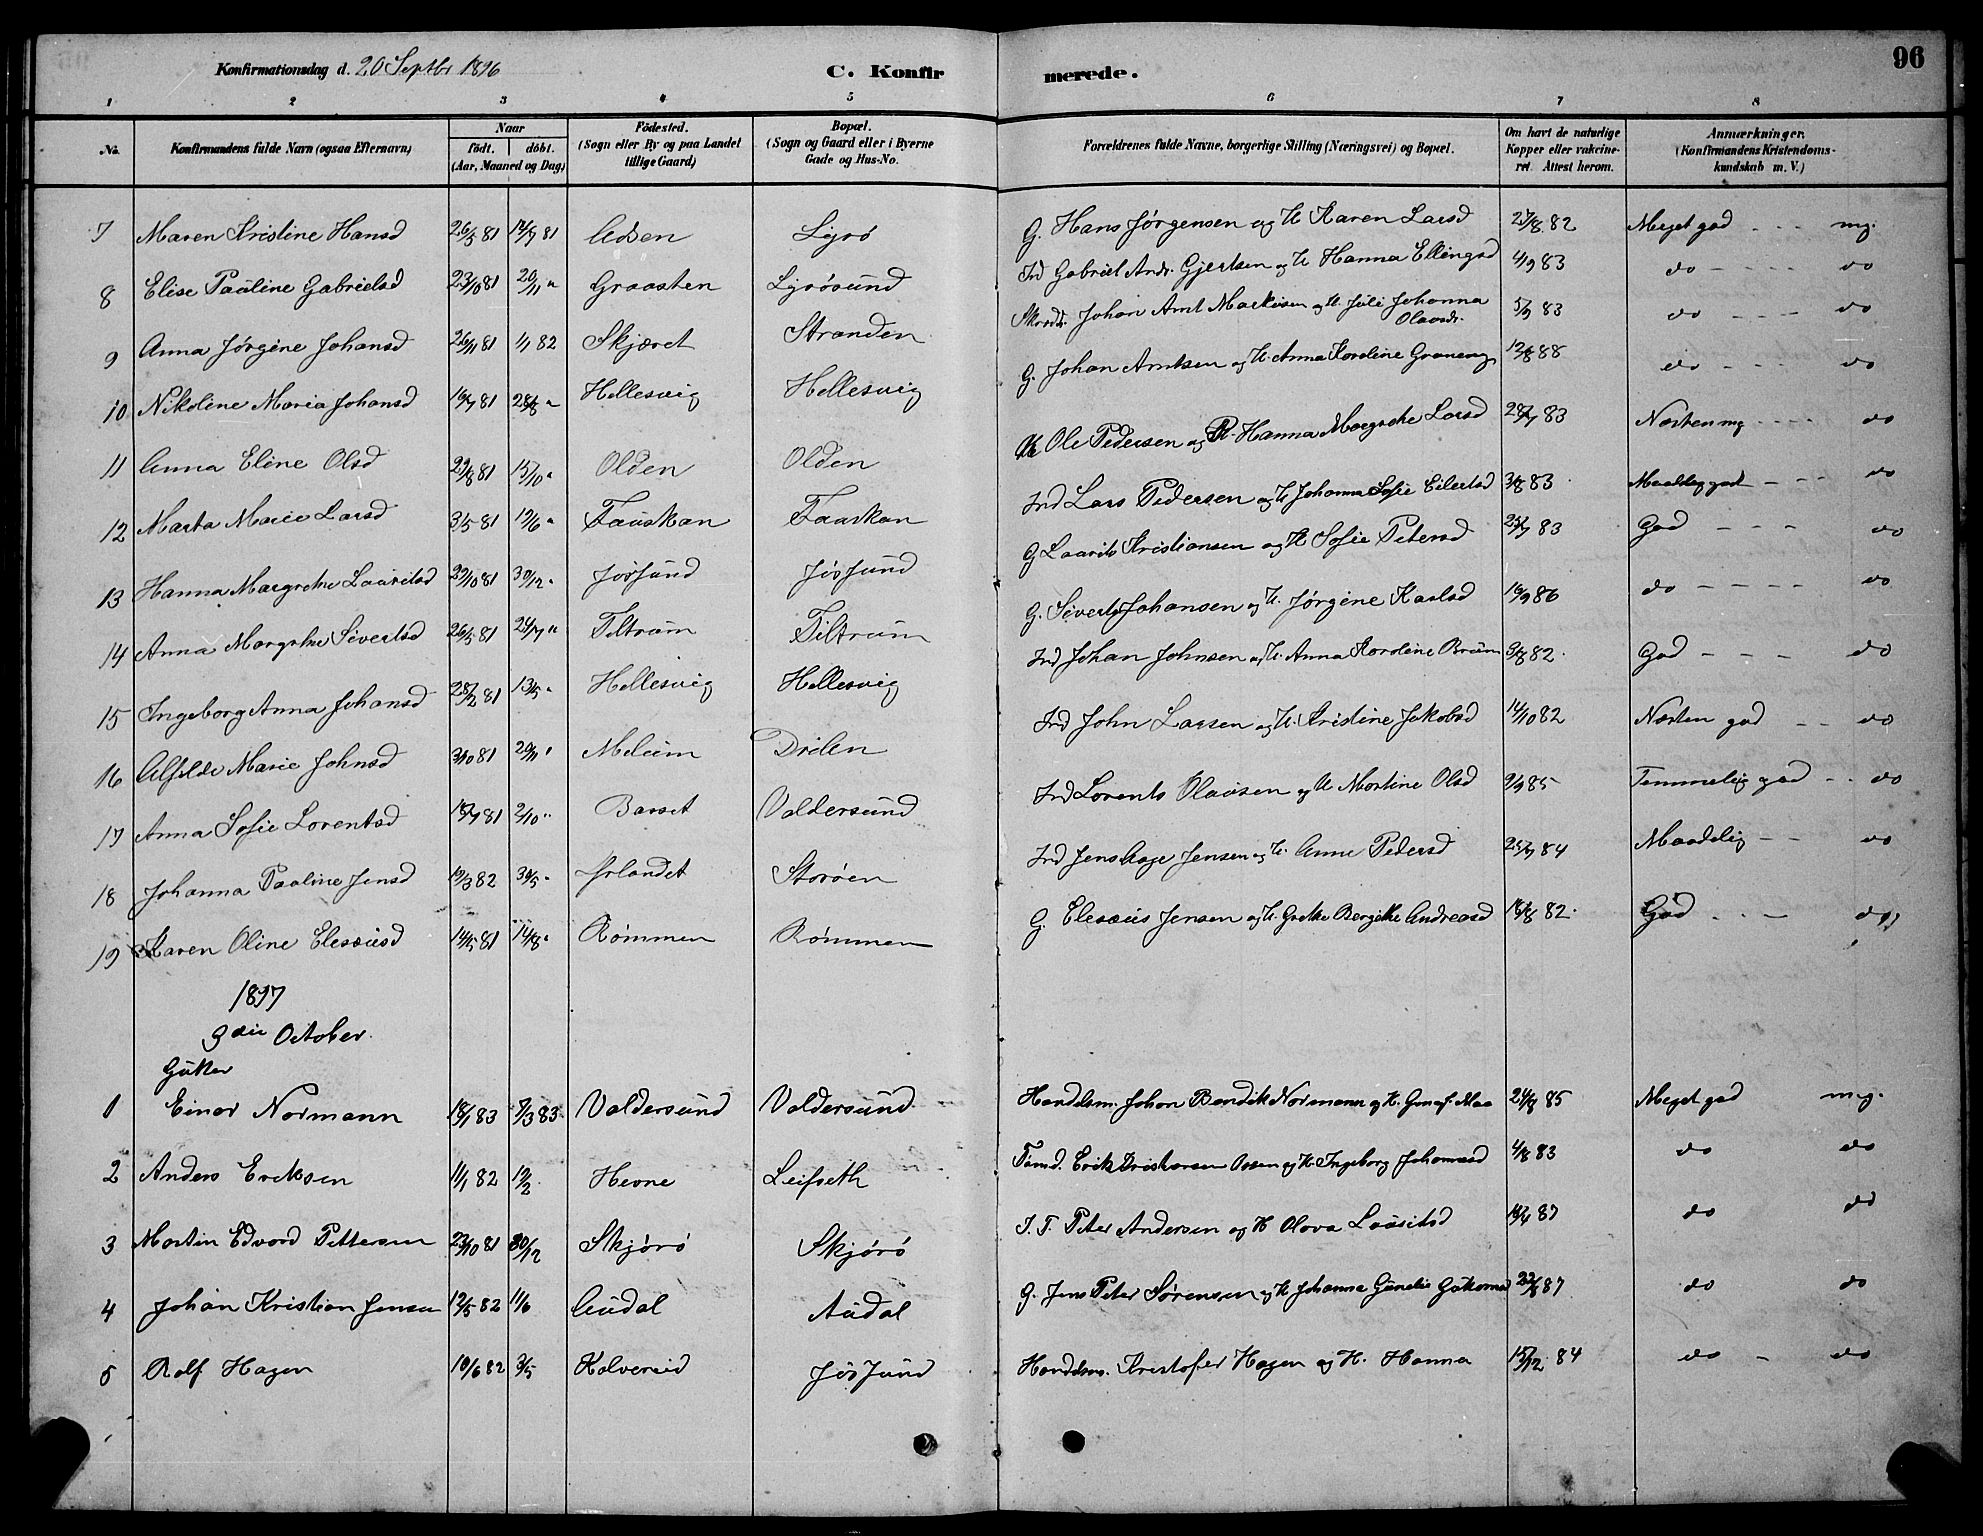 Konfirmationsdag d. 20 Septbr 1896 C. Konfir merede. 96
1 2 3 4 5 6 7 8
No. Konfirmandens fulde Navn (ogsaa Efternavn) Naar födt. döbt. (Aar, Maaned og Dag) Födested. (Sogn eller By og paa Landet tillige Gaard) Bopæl. (Sogn og Gaard eller i Byerne Gade og Hus-No. Forældrenes fulde Navne, borgerlige Stilling (Næringsvei) og Bopæl. Om havt de naturlige Kopper eller vakcineret. Attest herom. Anmærkninger. (Konfirmandens Kristendomskundskab m. V.)
7 Maren Kristine Hansd 26/5 81 14/7 81 Lyrö G. Hans Jörgensen og H. Karen Larsd 27/8 82 Meget god - - - mg.
8 Elise Pauline Gabrielsd 23/10 81 20/11 " Graasten Lyrösund Ind Gabriel Andr. Gjertsen og H Hanna Ellingsd 4/9 83 do - - - - do
9 Anna Jørgine Johansd 26/11 81 1/1 82 Skjæret Stranden Johan Arnt Markusen og H. Juli Johanna Olausdr. 5/7 83 do - - - - do
10 Nikoline Maria Johansd 16/7 81 28/8 " Hellesvig Hellesvig G. Johan Arntsen og H. Anna Karoline 12/8 88 do - - - do
11 Anna Eline Olsd 29/8 81 15/10 " Olden Olden Ole Pedersen og Hanna Margrethe Larsd 28/7 83 Næsten mg - - - - do
12 Marta Marie Larsd 3/5 81 12/6 " Fauskan Fauskan Ind Lars Pedersen og H Johanna Sofie Eilertsd 3/8 83 Maadelig god - - - do
13 Hanna Margrethe Lauritsd 29/10 81 30/12 " Jössund Jössund G Laurits Kristiansen og H Sofie Petersd 25/7 83 God - - - do
14 Anna Margrthe Sivertsd 26/5 81 24/7 " Tiltrum Tiltrum G. Sivert Johansen og H. Jørgine Karlsd 16/9 86 do - - - - do
15 Ingeborg Anna Johansd 28/2 81 13/5 " Hellesvig Hellesvig Ind Johan Johnsen og H. Anna Karoline 3/8 82 God - - - do
16 Alfilde Marie Johnsd 3/10 81 20/11 " Melum Ind John Larsen og H. Kristine Jakobsd 14/10 82 Næsten god - - do
17 Anna Sofie Lorentsd 18/7 81 2/10 " Barset Valdersund Ind Lorents Olausen og H Martine Olsd 9/9 85 Temmelig god - - do
18 Johanna Pauline Jensd 19/3 82 30/5 " Storöen Ind Jens Aage Jensen og H. Anne Pedersd 25/7 84 Maadelig - - do
19 Karen Oline Elesæusd 14/5 81 14/8 " Römmen Römmen G. Elesæus Jensen og H. Grethe Bergithe Andreasd 16/8 82 God - - - do
1897
3die October.
Gutter
1 Einar Normann 18/1 83 7/3 83 Valdersund Valdersund Handelsm. Johan Bendik Normann og H. 24/8 85 Meget god mg.
2 Anders Eriksen 11/1 82 12/2 Hevne Leifseth Erik Kristensen Ossen og H. Ingeborg Johannesd 4/8 83 do do
3 Martin Edvard Pettersen 23/10 81 30/12 Skjörö Skjörö I. F. Peter Andersen og H Olava Lauritsd 14/4 87 do do
4 Johan Kristian Jensen 12/5 82 11/6 Audal Audal G. Jens Peter Sørensen og H Johanna 22/8 87 do do
5 Rolf Hagen 10/6 82 3/5 Kolvereid Jösund Handelsm. Kristofer Hagen og H. Hanna 15/12 84 do - do